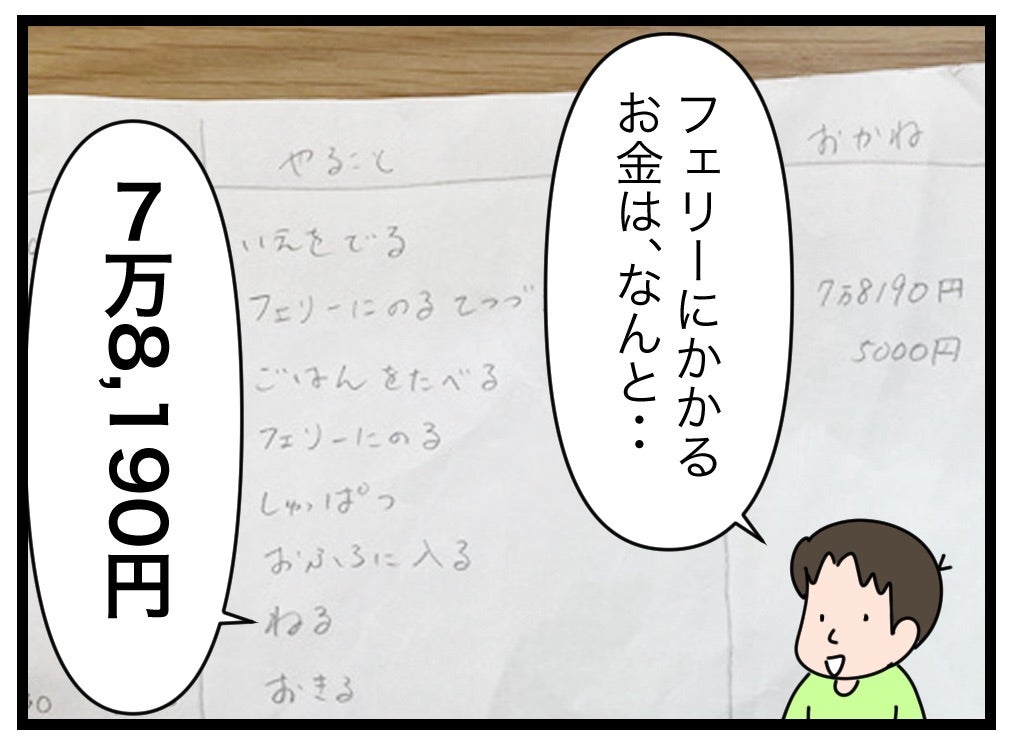 フェリーにかかる
お金は、なんと‥
7万8,190円
やること
おかね
いえをでる
フェリーにのるてつづ
7万8190円
ごはんをたべる
5000円
フェリーにのる
しゅっぱつ
おふろに入る
ねる
おきる